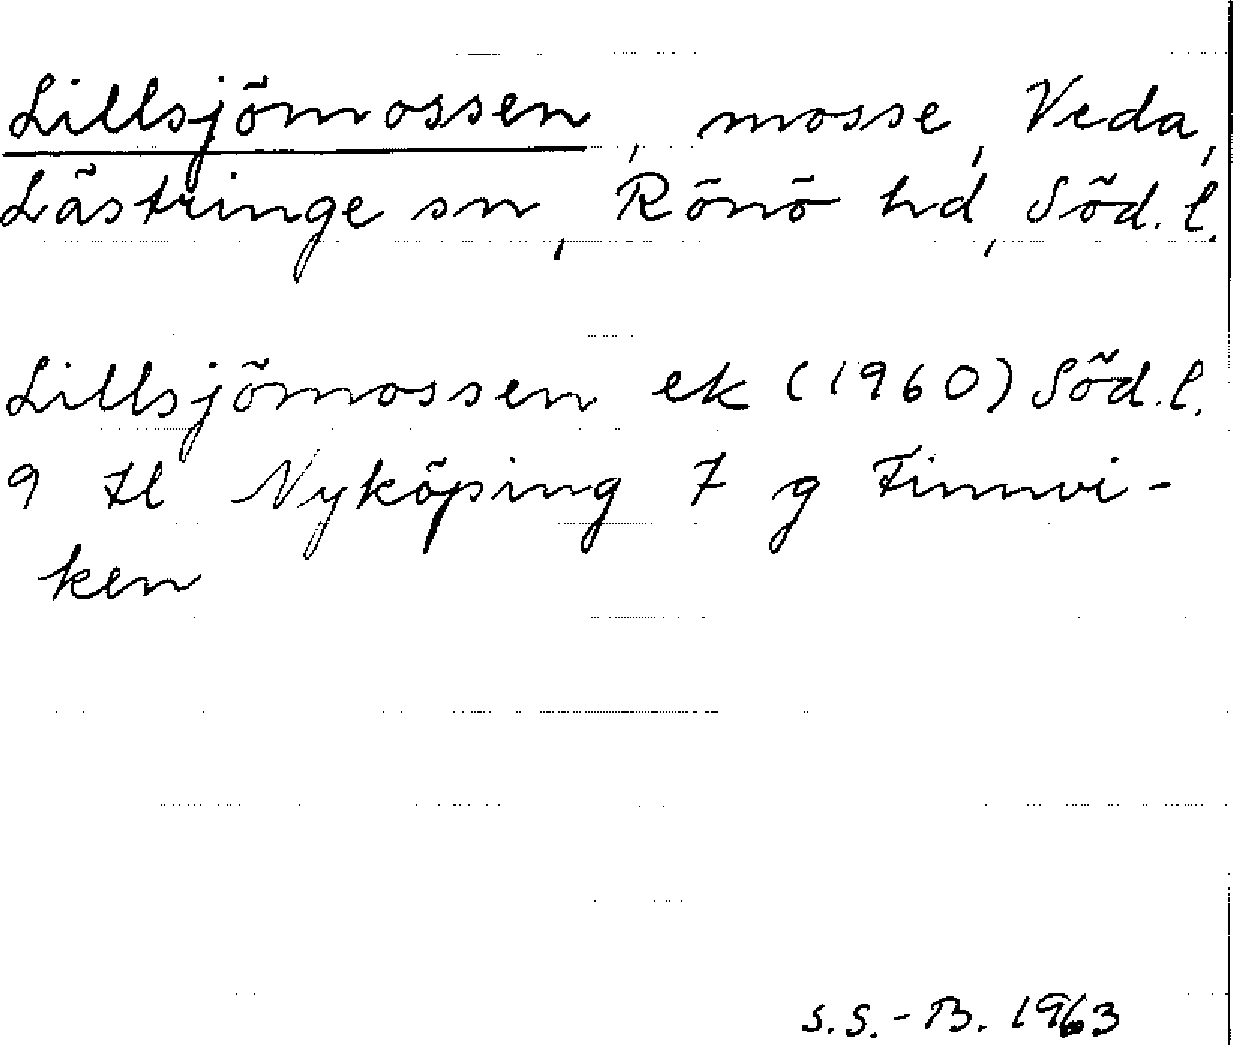 Lillsjömossen, mosse, Veda,
Lästringe sn, Rönö hd, Söd. l.
Lillsjömossen ek (1960) Söd. l.
9 H Nyköping 7 g Finnvi-
ken
S.S.-B. 1963